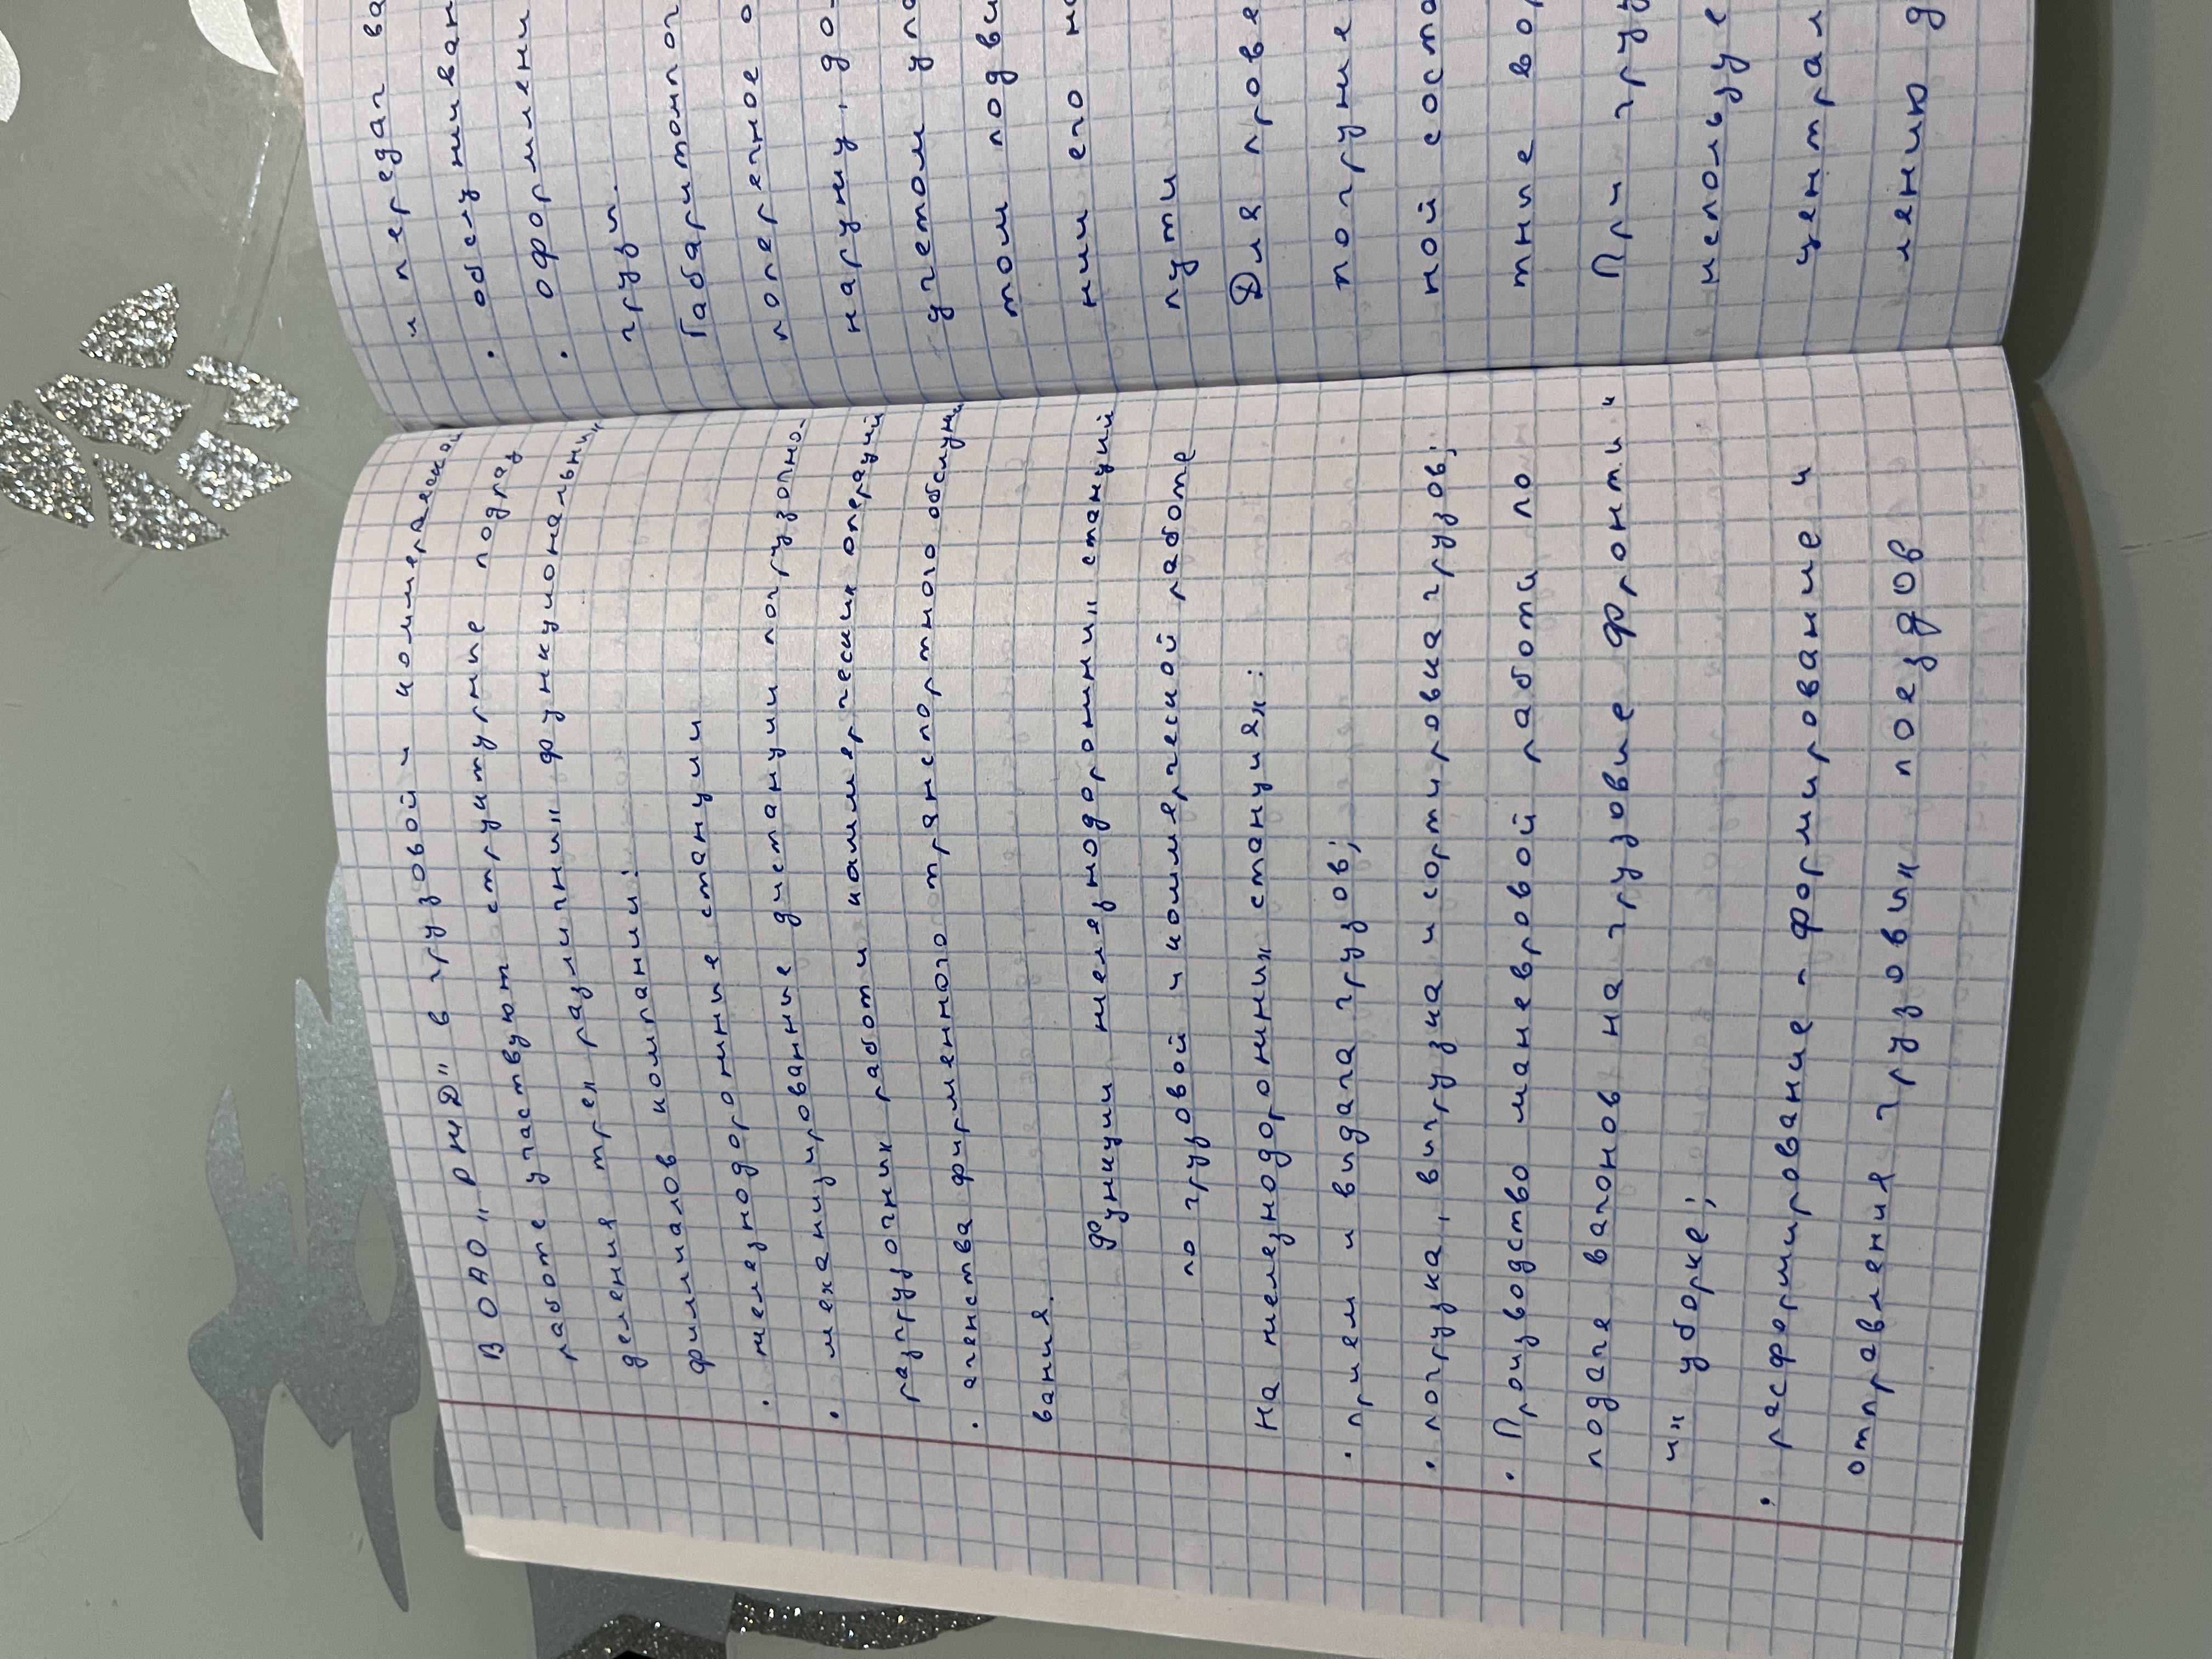 В ОАО „РЖД" в грузовой и коммерческой
работе участвуют структурные подраз
деления трех различных функциональных
филлиалов компании:
• железнодорожные станции
• механизированные дистанции погрузочно-
разгрузочных работы коммерческих операций
• агенства фирменного транспортного обслужи
вания.
Функции железнодорожных станций
по грузовой и коммерческой работе
На железнодорожных станциях:
• прием и выдача грузов;
• погрузка, выгрузка и сортировка грузов;
• Производство маневровой работы по
подаче вагонов на грузовые фронты и
их уборке;
• расформирование - формирование и
отправления грузовых поездов
и передач ва
• обслуживан
• оформлени
грузи.
Габаритомпог
поперечное о
наружу, до
учетом упа
том подви
нии его на
пути
Для прове
погруже
ной соста
тные вор
При груз
используе
централ
лению д